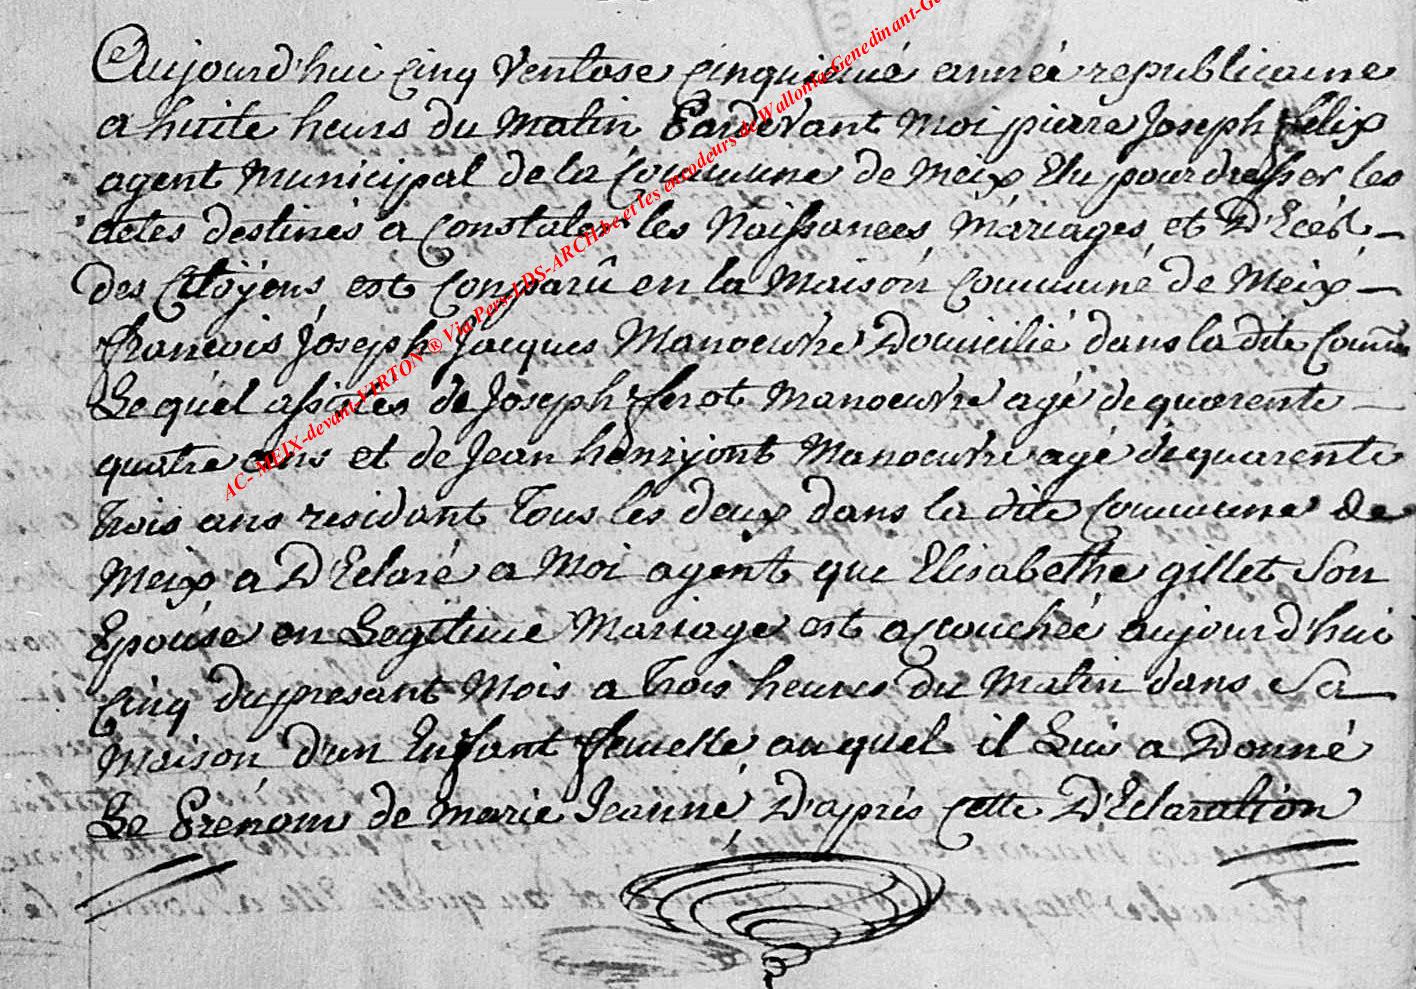 Aujourd'hui cinq Ventose cinquiemé anneé republicaine
a huite heurs du Matin, Pardevant Moi pierre Joseph felix
agent Municipal de la Commune de Meix Elu pour dresser les
actes destinés a constater les Naissances Mariages et D'Ecés –
des Citoÿens est comparû en la Maison Commune de Meix –
francois Joseph Jacques Manoeuvre Domicilié dans la dite Comune
Le quel assistes de Joseph ferot Manoeuvre agé de quarente –
quatre ans et de Jean henrijont Manoeuvre agé de quarente
trois ans residant Tous les deux dans la dite Commune de
Meix a D'Eclaré a Moi agent que Elisabethe gillet Son
Epouse en Legitime Mariage est accouchée aujourd'hui
cinq du presant Mois a trois heures du Matin dans Sa
Maison d'un Enfant femelle auquel il Lui a Donné
Le Prénom de Marie Jeanne, D'aprés cette D'Eclaration
AC- MEIX-devant-VIRTON ® Via Pers-LDS-ARCH.be et les encodeurs de Wallonia-Genedinant-Ge